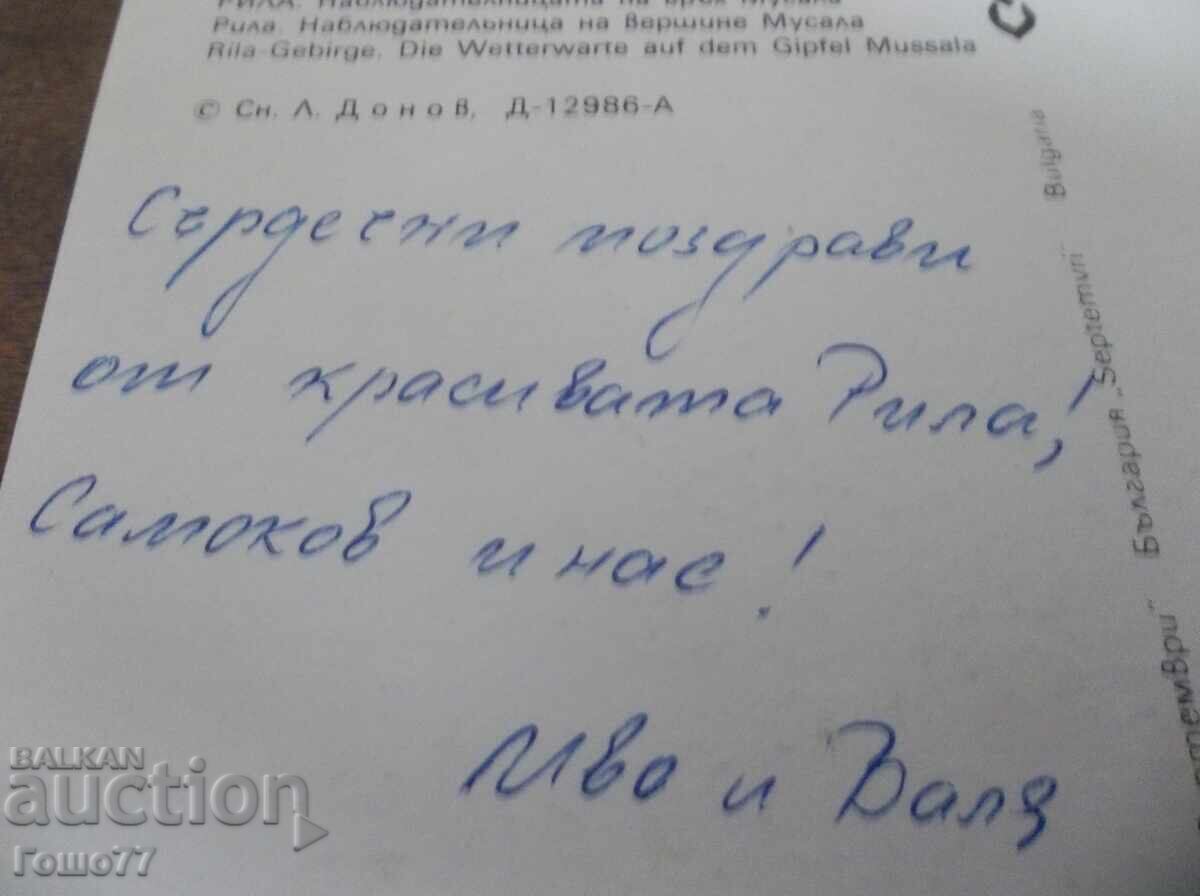 РИЛА. Наблюдателницата на връх Мусала
Рила. Наблюдательница на вершине Мусала
Rila-Gebirge. Die Wetterwarte auf dem Gipfel Mussala
© Сн. Л. Донов, Д-12986-А
Сърдечни поздрави
от красивата Рила,
Самоков и нас!
Иво и Валя
България „Septemvri" Bulgaria
BALKAN
auction
Гошо77